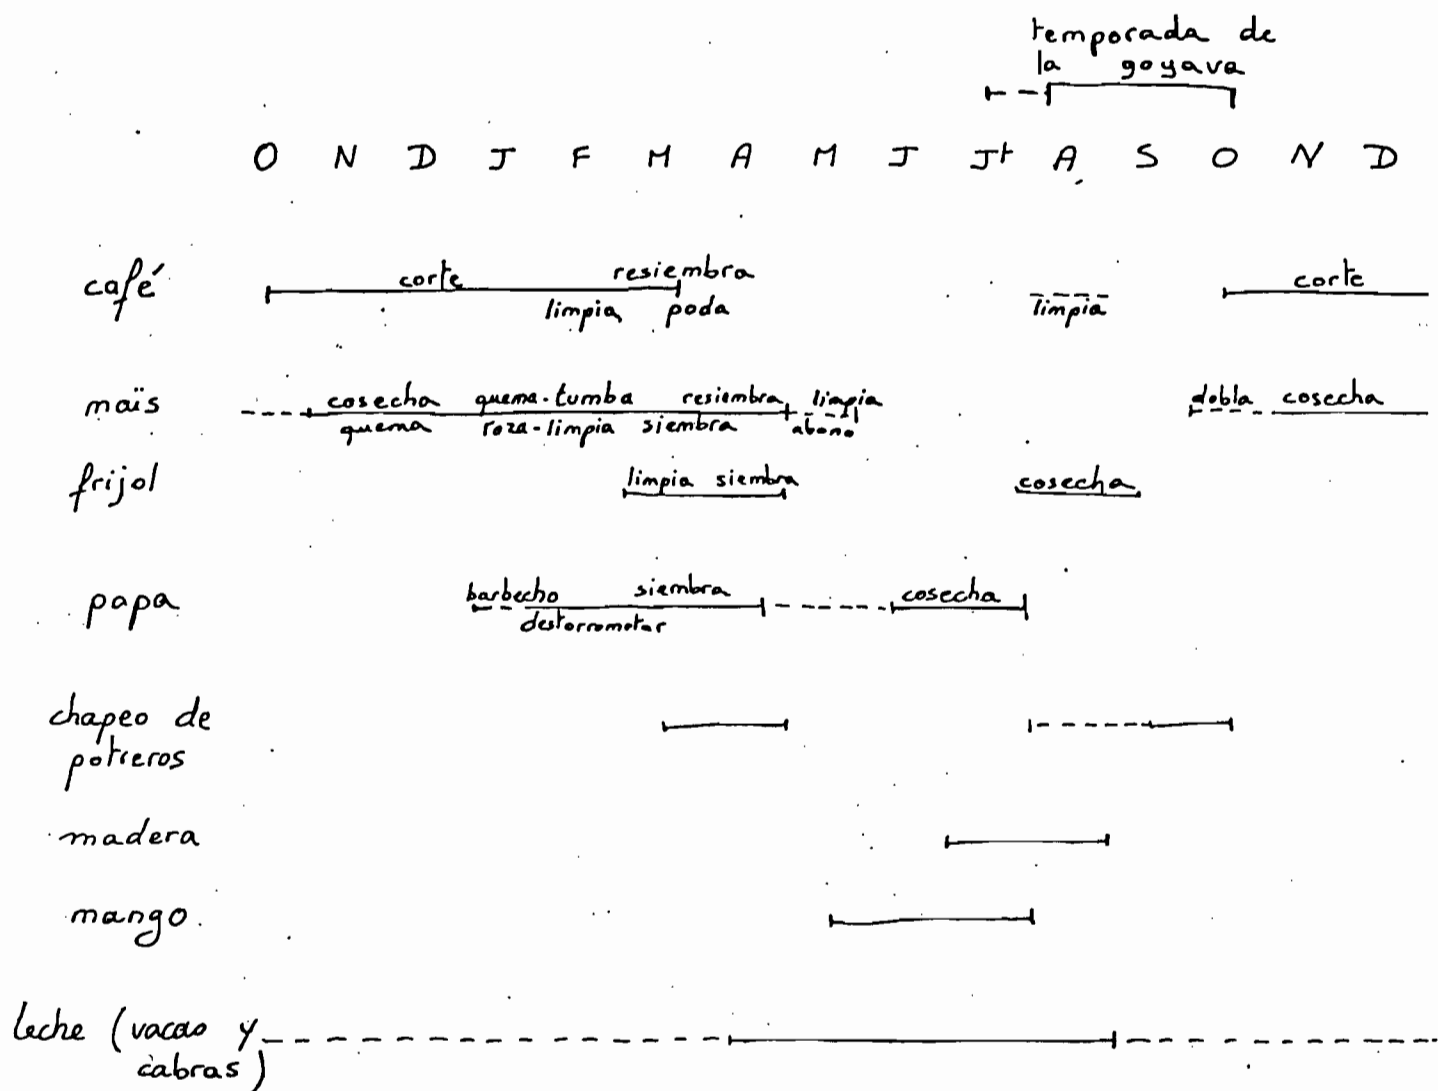 temporada de
la goyava
O N D J F M A M J Jt A S O N D
café corte resiembra corte
limpia poda limpia
maïs cosecha quema-tumba resiembra limpia dobla cosecha
quema roza-limpia siembra abono
frijol limpia siembra cosecha
papa barbecho siembra cosecha
destorromotar
chapeo de
potreros
madera
mango.
leche (vacas y
cabras)